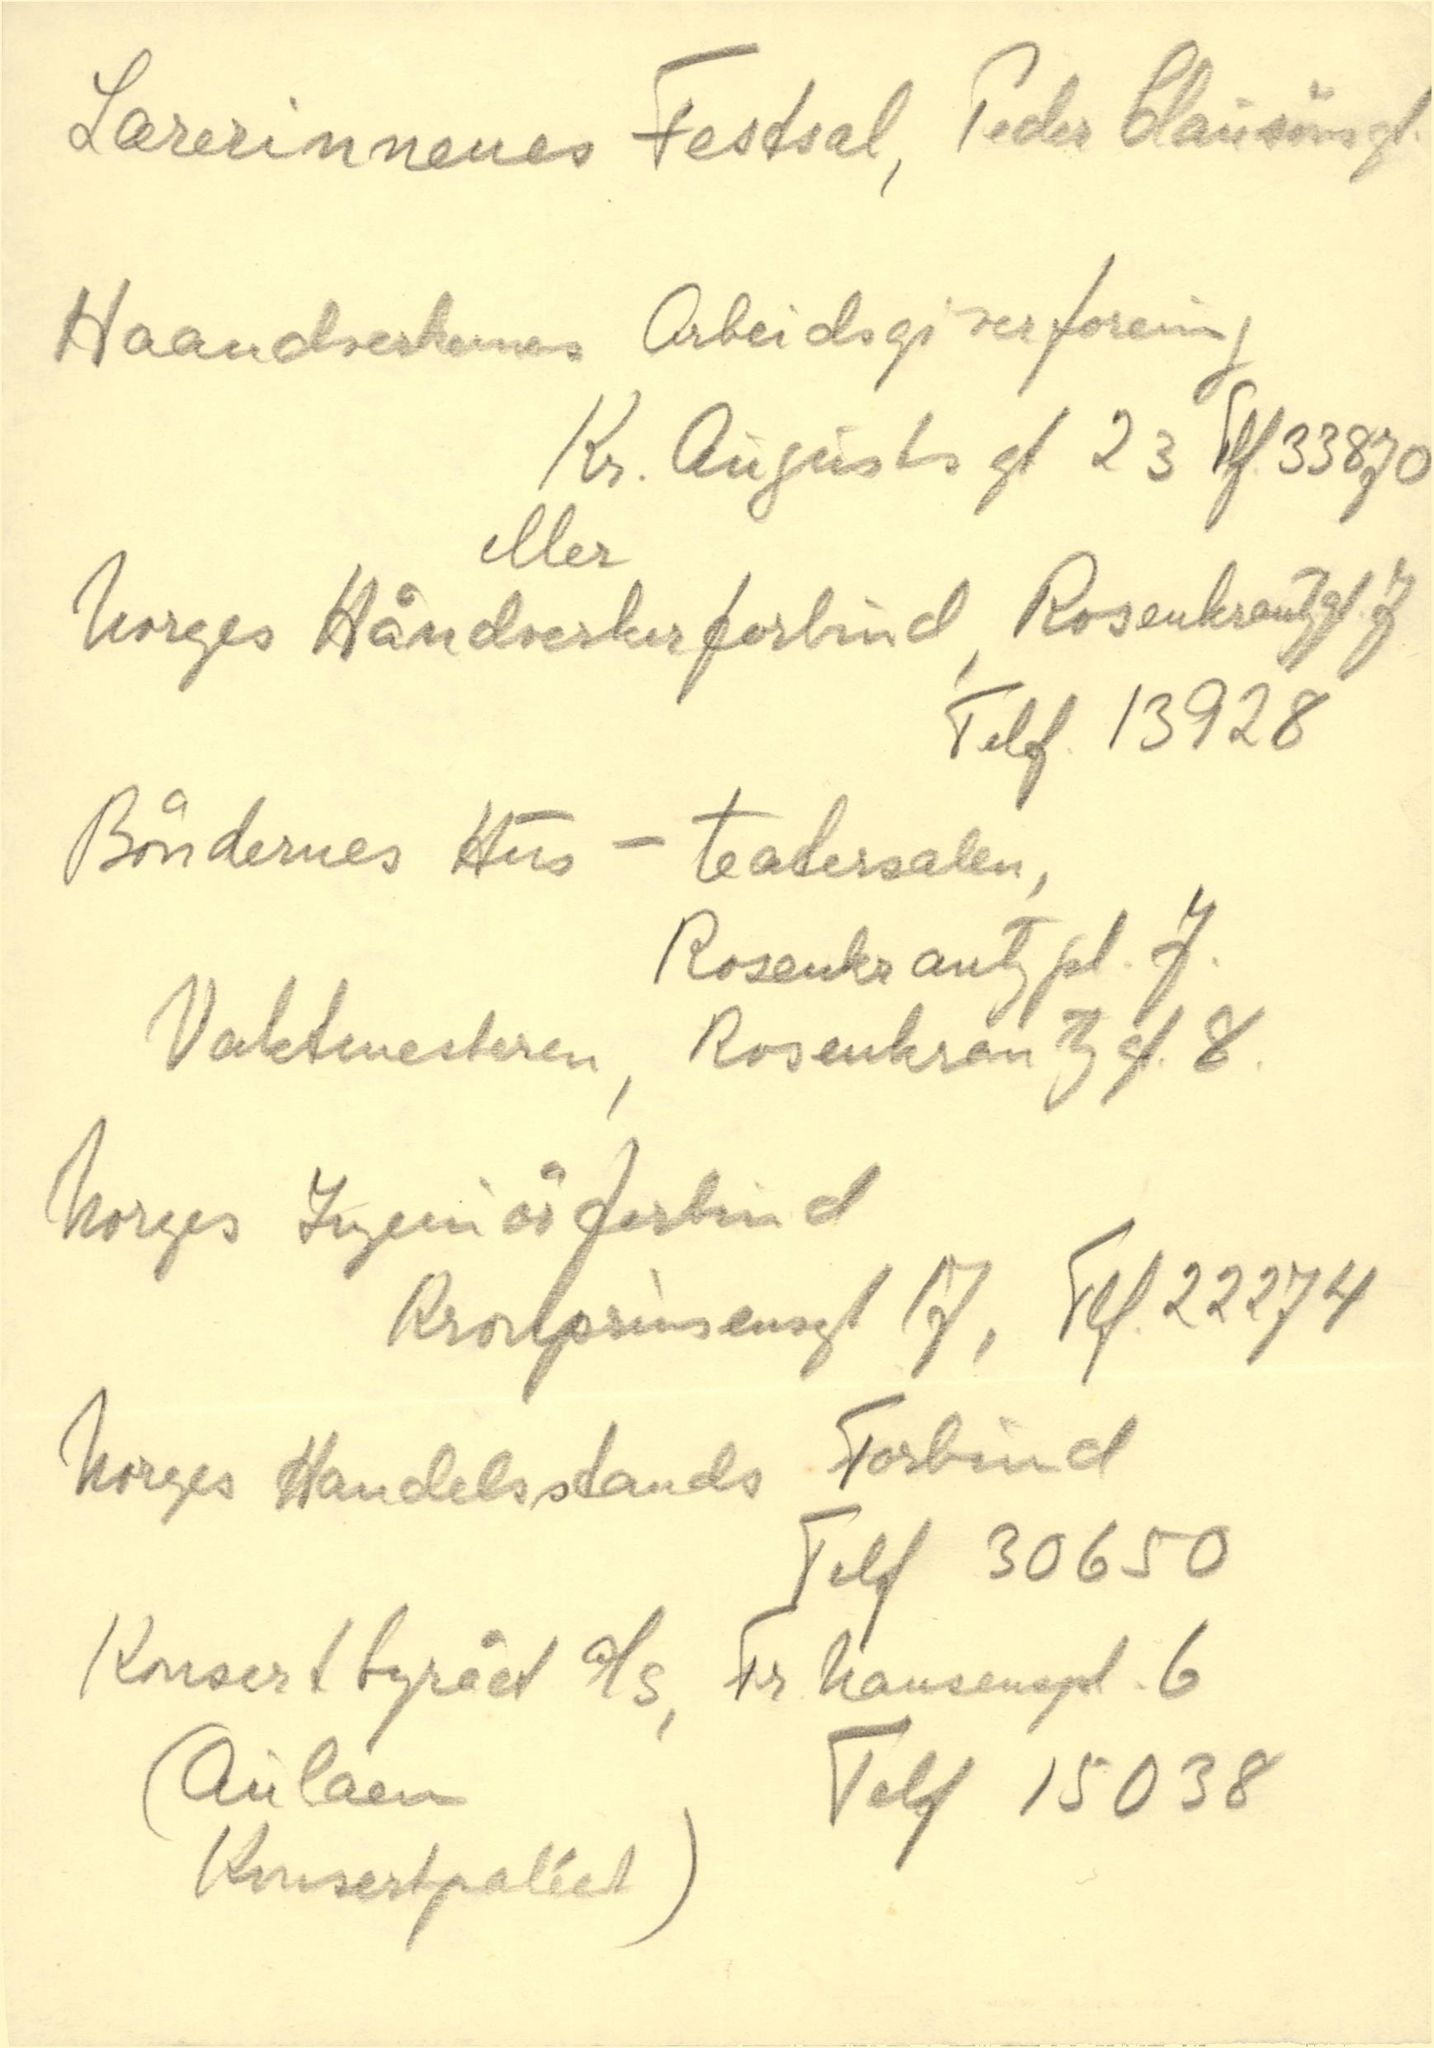 Lærerinnenes Festsal, Peder Clausönsgt.
Haandverkernes Arbeidsgiverforening
Kr. Augusts gt 23 Tlf. 33870
eller
Norges Håndverkerforbund, Rosenkrantzgt. 7
Telf. 13928
Böndernes Hus - teatersalen,
Rosenkrantzgt. 7.
Vaktmesteren, Rosenkrantzgt. 8.
Norges Ingeniörforbund
Kronprinsensgt 17, Tlf. 22274
Norges Handelsstands Forbund
Telf 30650
Konsertbyrået A/S, Fr. Nansenspl. 6
(Aulaen Telf 15038
Konsertpaléet)